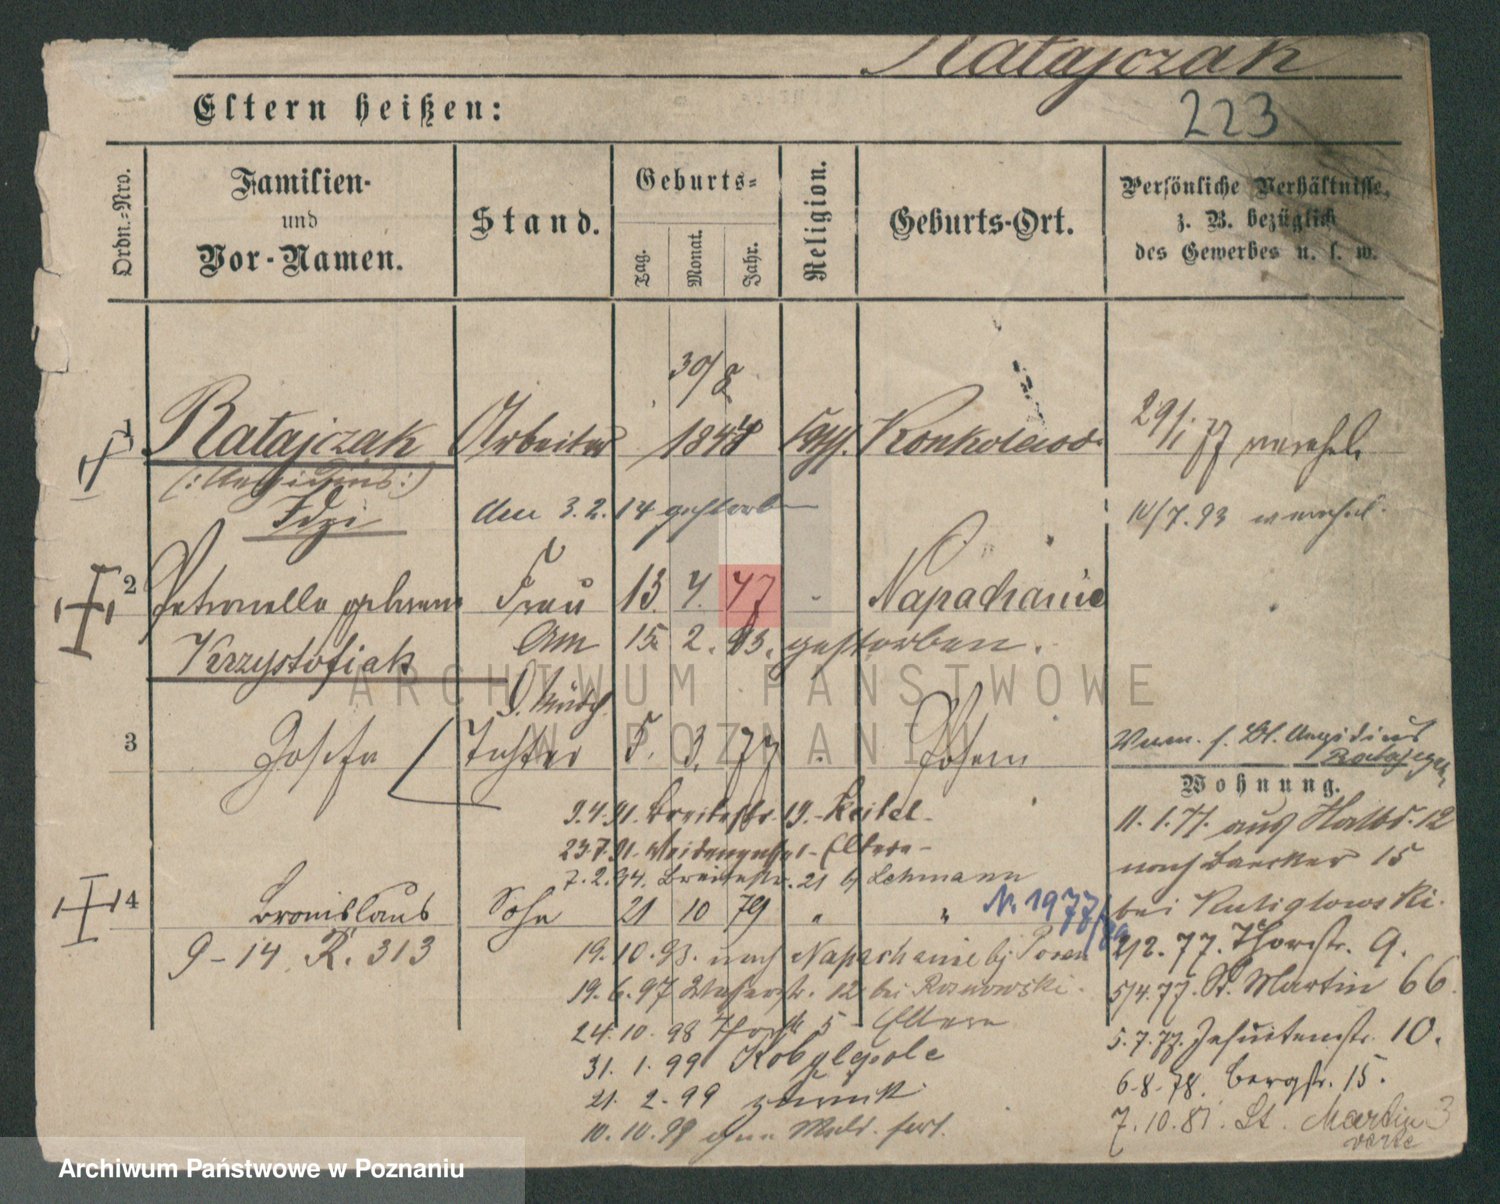 Ratajczak
223
Eltern heißen:
Ordn.-Nro.
Familien-
und
Vor-Namen.
Stand.
Geburts-
Tag.
Monat.
Jahr.
Religion.
Geburts-Ort.
Persönliche Verhältnisse,
z. B. bezüglich
des Gewerbes u. s. w.
30/8
1 Ratajczak Arbeiter 1848 Konkolewo 29/1 77 verehel.
Idzi den 3.2.14 gestorben 10/7.93 verehel.
2 Petronella geborene Frau 13. 4. 47 Napachanie
Krzystofiak Am 15. 2. 93. gestorben.
3 Josefa Tochter 5. 3. 77 Posen
Aegidius
Ratajczak
Wohnung.
9.4.91. Breitestr. 19.- Keitel- 11.1.77. aus Halbd. 12
23.7.91. Weidengasse - Eltern - nach Baecker 15
7.2.94. Breitestr. 21 b/ Lehmann
4 Bronislaus Sohn 21 10 79 " " N. 1977/89 bei Ruligłowski.
9-14. R. 313 19.10.93. nach Napachanie b/ Posen 2/2.77. Thorstr. 9.
19.6.97 Wasserstr. 12 bei 5/4.77. St. Martin 66.
24.10.98 Thorstr 5 - Eltern 5.7.77. Jesuitenstr. 10.
31.1.99 Kobylepole 6.8.78. Bergstr. 15.
21.2.99 zurück 7.10.81. St. Martin 3
10.10.99 ohne Meld. fort. verte
ARCHIWUM PAŃSTWOWE
W POZNANIU
Archiwum Państwowe w Poznaniu